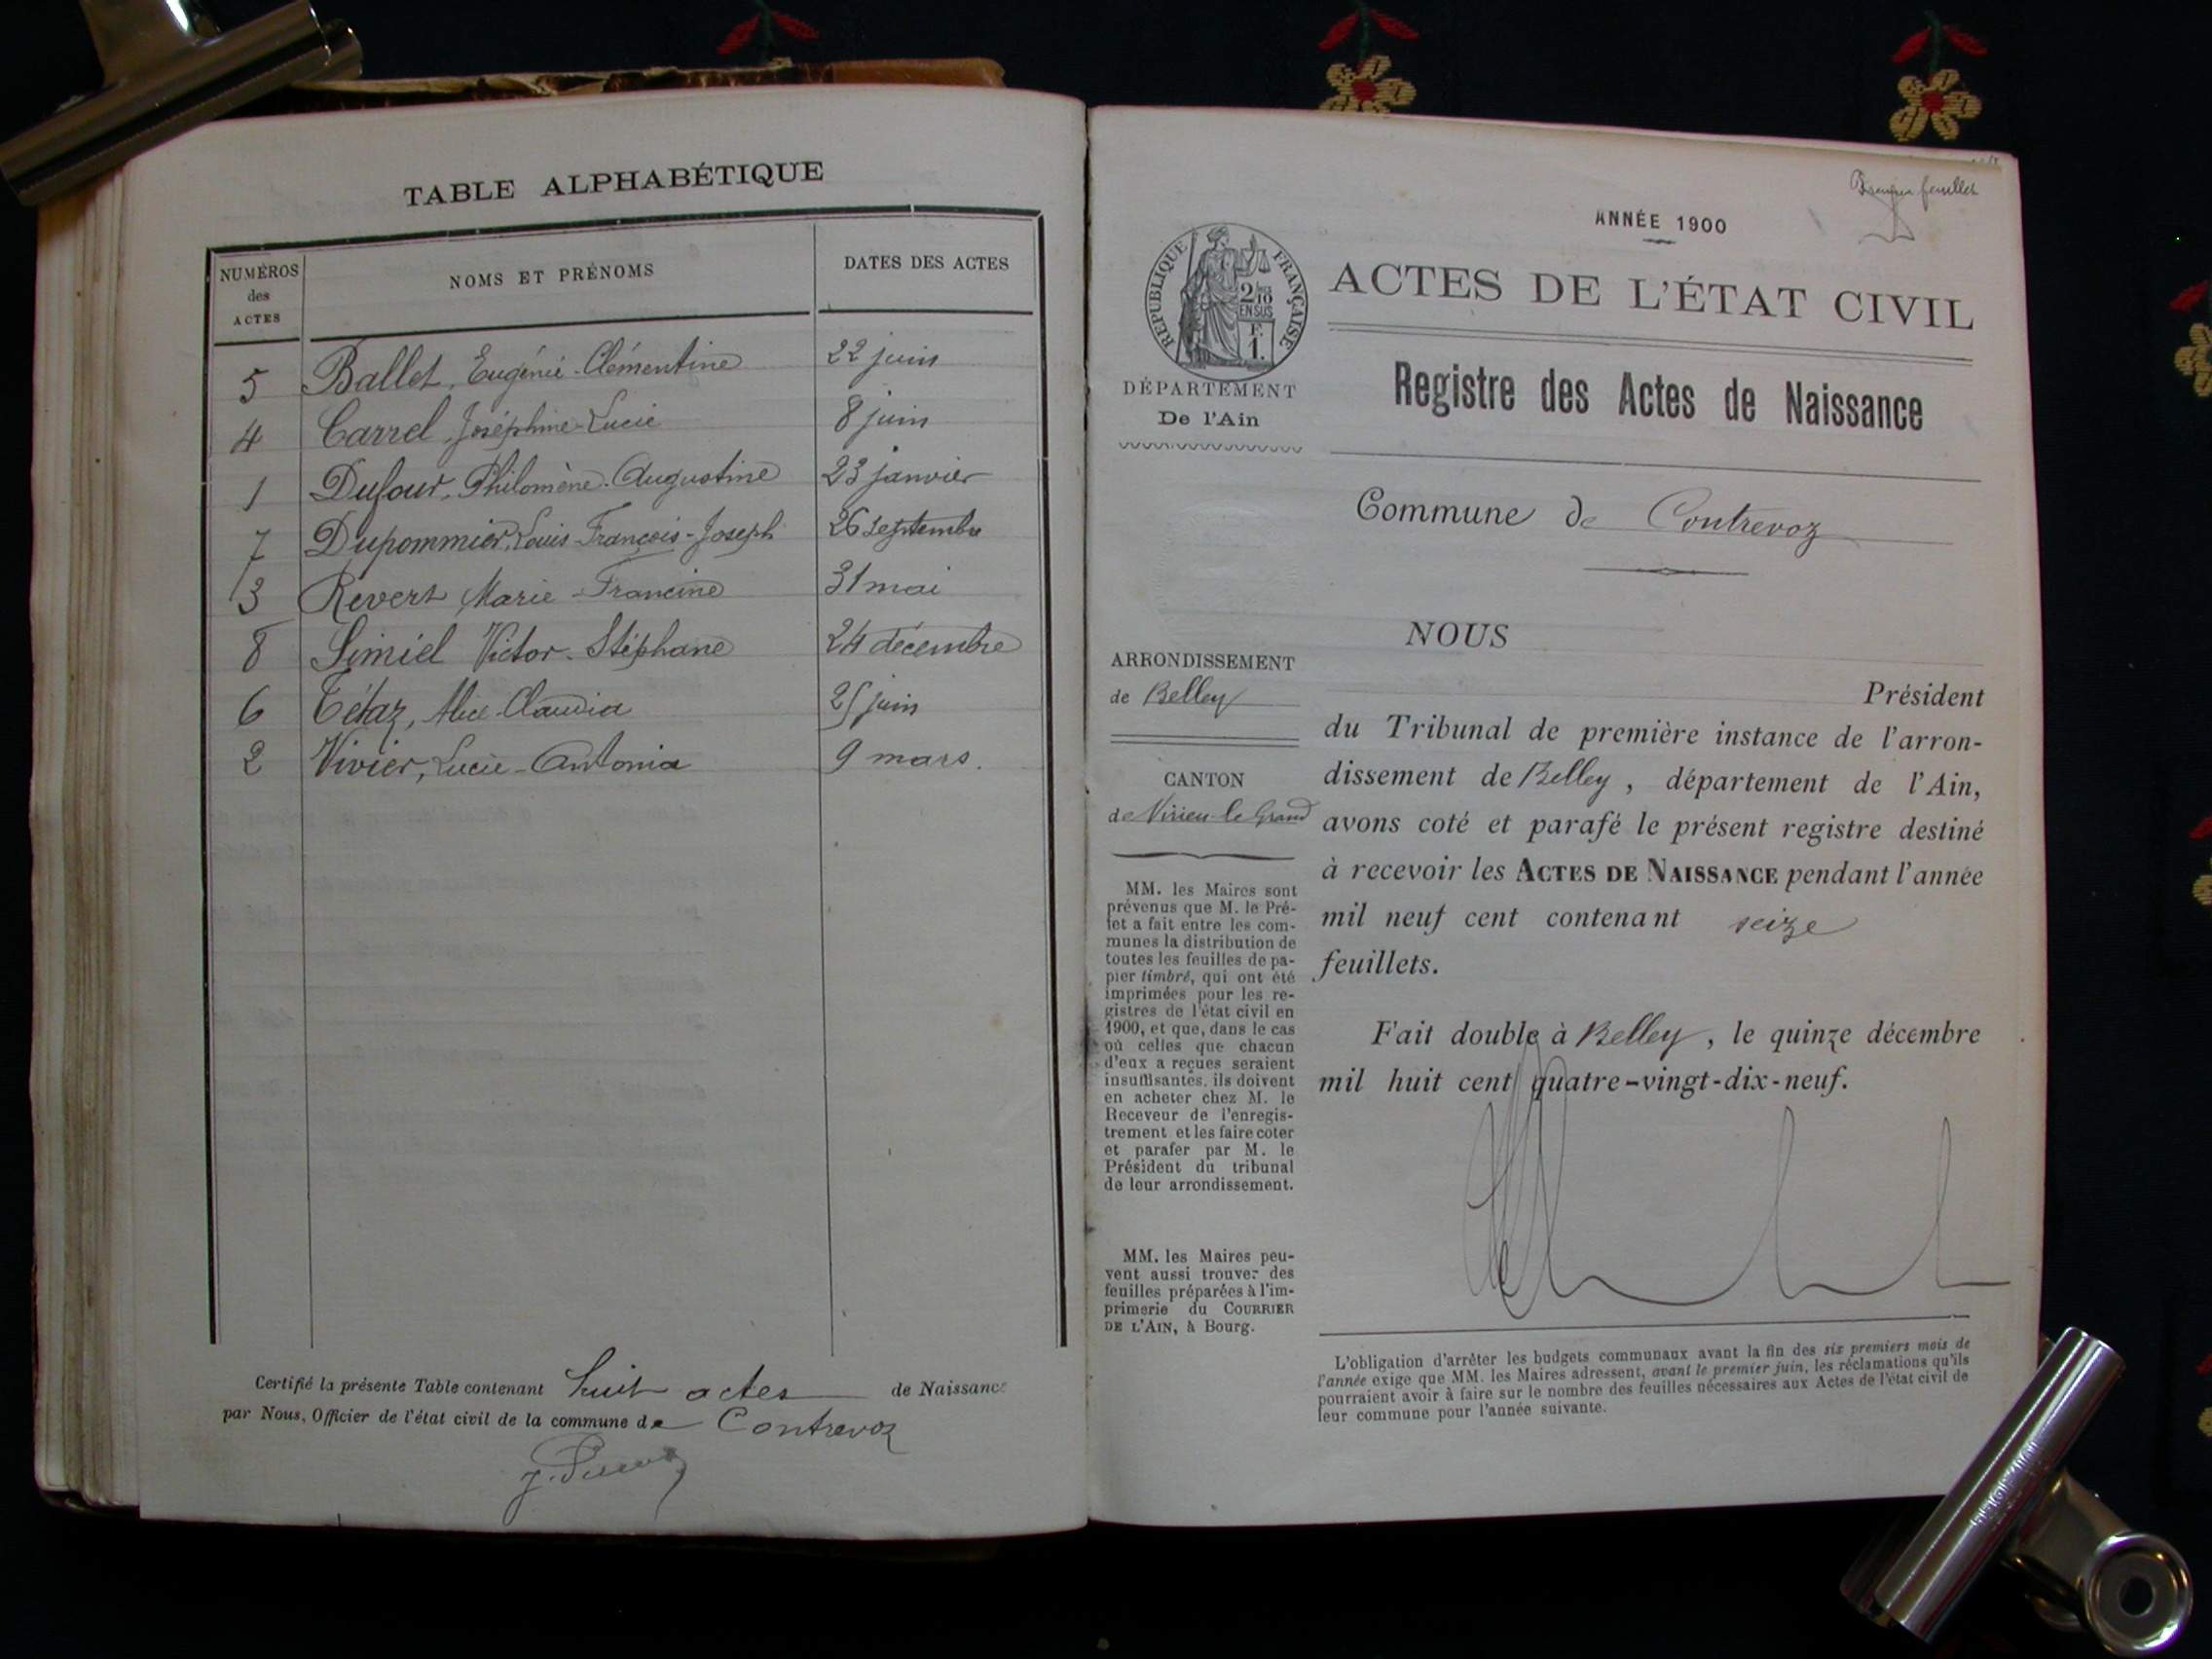 TABLE ALPHABÉTIQUE
NUMÉROS
des
ACTES
NOMS ET PRÉNOMS
DATES DES ACTES
5 Ballet, Eugénie-Clémentine 22 juin
4 Carrel, Joséphine-Lucie 8 juin
1 Dufour, Philomène-Augustine 23 janvier
7 Dupommier, Louis-François-Joseph 26 septembre
3 Marie-Francine 31 mai
8 Simiél Victor-Stéphane 24 décembre
6 Tétaz, Alice-Claudia 25 juin
2 Vivier, Lucie-Antonia 9 mars.
Certifié la présente Table contenant huit actes de Naissance
par Nous, Officier de l'état civil de la commune de Contrevoz
feuillet
ANNÉE 1900
RÉPUBLIQUE FRANÇAISE
2/10
EN SUS
F.
1.
ACTES DE L'ÉTAT CIVIL
DÉPARTEMENT
De l'Ain
Registre des Actes de Naissance
Commune de Contrevoz
ARRONDISSEMENT
de Belley
CANTON
de Virieu-le-Grand
MM. les Maires sont
prévenus que M. le Pré-
fet a fait entre les com-
munes la distribution de
toutes les feuilles de pa-
pier timbré, qui ont été
imprimées pour les re-
gistres de l'état civil en
1900, et que, dans le cas
où celles que chacun
d'eux a reçues seraient
insuffisantes, ils doivent
en acheter chez M. le
Receveur de l'enregis-
trement et les faire coter
et parafer par M. le
Président du tribunal
de leur arrondissement.
MM. les Maires peu-
vent aussi trouver des
feuilles préparées à l'im-
primerie du COURRIER
DE L'AIN, à Bourg.
NOUS
Président
du Tribunal de première instance de l'arron-
dissement de Belley, département de l'Ain,
avons coté et parafé le présent registre destiné
à recevoir les ACTES DE NAISSANCE pendant l'année
mil neuf cent contenant seize
feuillets.
Fait double à Belley, le quinze décembre
mil huit cent quatre-vingt-dix-neuf.
L'obligation d'arrêter les budgets communaux avant la fin des six premiers mois de
l'année exige que MM. les Maires adressent, avant le premier juin, les réclamations qu'ils
pourraient avoir à faire sur le nombre des feuilles nécessaires aux Actes de l'état civil de
leur commune pour l'année suivante.